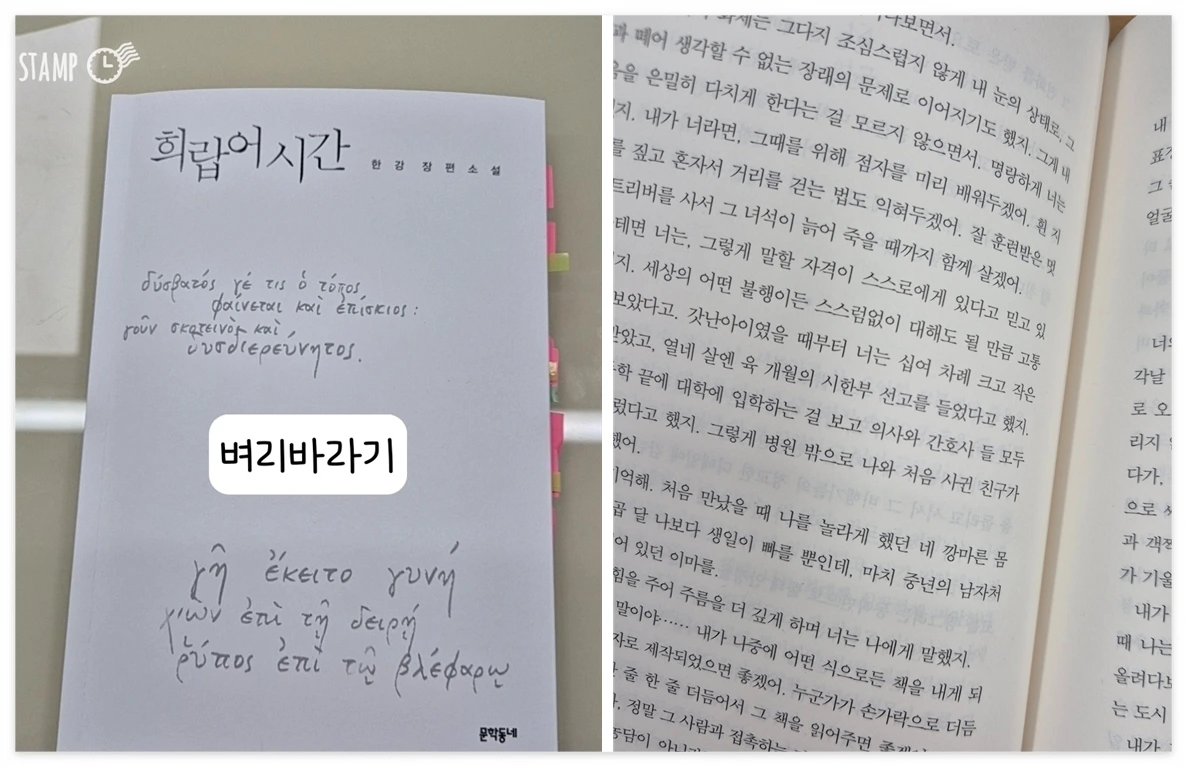 STAMP
희랍어 시간
한강 장편소설
δύσβατός γέ τις ὁ τόπος
φαίνεται καὶ ἐπίσκιος:
γοῦν σκοτεινὸς καὶ
δυσδιερεύνητος.
벼리바라기
γῇ ἔκειτο γυνή
χιὼν ἐπὶ τῇ δειρῇ
ῥύπος ἐπὶ τῷ βλέφαρῳ
문학동네
화제는 그다지 조심스럽지 않게 내 눈의 상태로, 그
떼어 생각할 수 없는 장래의 문제로 이어지기도 했지. 그게 내
은밀히 다치게 한다는 걸 모르지 않으면서, 명랑하게 너는
내가 너라면, 그때를 위해 점자를 미리 배워두겠어. 흰 지
짚고 혼자서 거리를 걷는 법도 익혀두겠어. 잘 훈련받은 멋
트리버를 사서 그 녀석이 늙어 죽을 때까지 함께 살겠어.
테면 너는, 그렇게 말할 자격이 스스로에게 있다고 믿고 있
지. 세상의 어떤 불행이든 스스럼없이 대해도 될 만큼 고통
보았다고. 갓난아이였을 때부터 너는 십여 차례 크고 작은
받았고, 열네 살엔 육 개월의 시한부 선고를 들었다고 했지.
끝에 대학에 입학하는 걸 보고 의사와 간호사 들 모두
렀다고 했지. 그렇게 병원 밖으로 나와 처음 사귄 친구가
했어.
기억해. 처음 만났을 때 나를 놀라게 했던 네 깡마른 몸
달 나보다 생일이 빠를 뿐인데, 마치 중년의 남자처
있던 이마를.
힘을 주어 주름을 더 깊게 하며 너는 나에게 말했지.
말이야…… 내가 나중에 어떤 식으로든 책을 내게 되
자로 제작되었으면 좋겠어. 누군가가 손가락으로 더듬
줄 한 줄 더듬어서 그 책을 읽어주면 좋겠어.
정말 그 사람과 접촉하는
내
표정
그
얼굴
너의
각날
로 오
리지
다가.
으로
과 객쩍
가 기울
내가
때 나는
올려다보
는 도시
내가